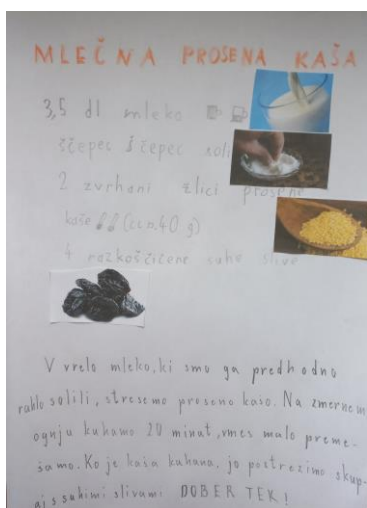 MLEČNA PROSENA KAŠA
3,5 dl mleko
ščepec ščepec soli
2 zvrhani žlici prosene
kaše (ca. 40 g)
4 razkoščičene suhe slive
V vrelo mleko, ki smo ga predhodno
rahlo solili, stresemo proseno kašo. Na zmernem
ognju kuhamo 20 minut, vmes malo preme-
šamo. Ko je kaša kuhana, jo postrezimo skup-
aj s suhimi slivami DOBER TEK!